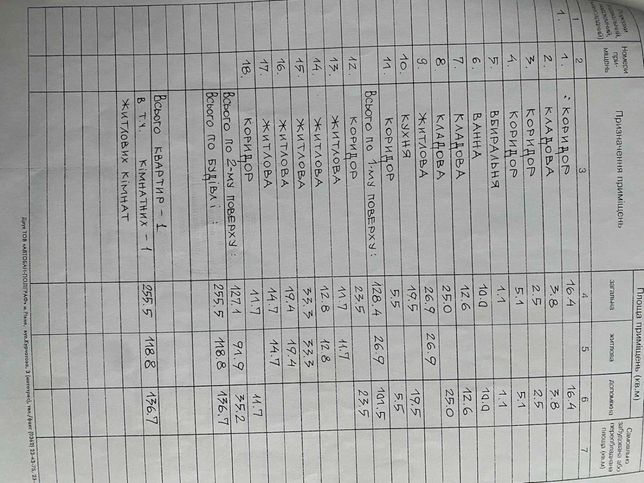 Номери приміщень
Призначення приміщень
Площа приміщень (кв.м)
загальна житлова допоміжна
Самовільно збудована або переобладнана площа (кв.м)
1 2 3 4 5 6 7
1. 1. КОРИДОР 16.4 16.4
2. КЛАДОВА 3.8 3.8
3. КОРИДОР 2.5 2.5
4. КОРИДОР 5.1 5.1
5. ВБИРАЛЬНЯ 1.1 1.1
6. ВАННА 10.0 10.0
7. КЛАДОВА 12.6 12.6
8. КЛАДОВА 25.0 25.0
9. ЖИТЛОВА 26.9 26.9
10. КУХНЯ 19.5 19.5
11. КОРИДОР 5.5 5.5
Всього по 1-му поверху: 128.4 26.9 101.5
12. КОРИДОР 23.5 23.5
13. ЖИТЛОВА 11.7 11.7
14. ЖИТЛОВА 12.8 12.8
15. ЖИТЛОВА 33.3 33.3
16. ЖИТЛОВА 19.4 19.4
17. ЖИТЛОВА 14.7 14.7
18. КОРИДОР 11.7 11.7
Всього по 2-му поверху: 127.1 91.9 35.2
Всього по будівлі: 255.5 118.8 136.7
Всього квартир - 1 255.5 118.8 136.7
в т.ч. кімнатних - 1
житлових кімнат